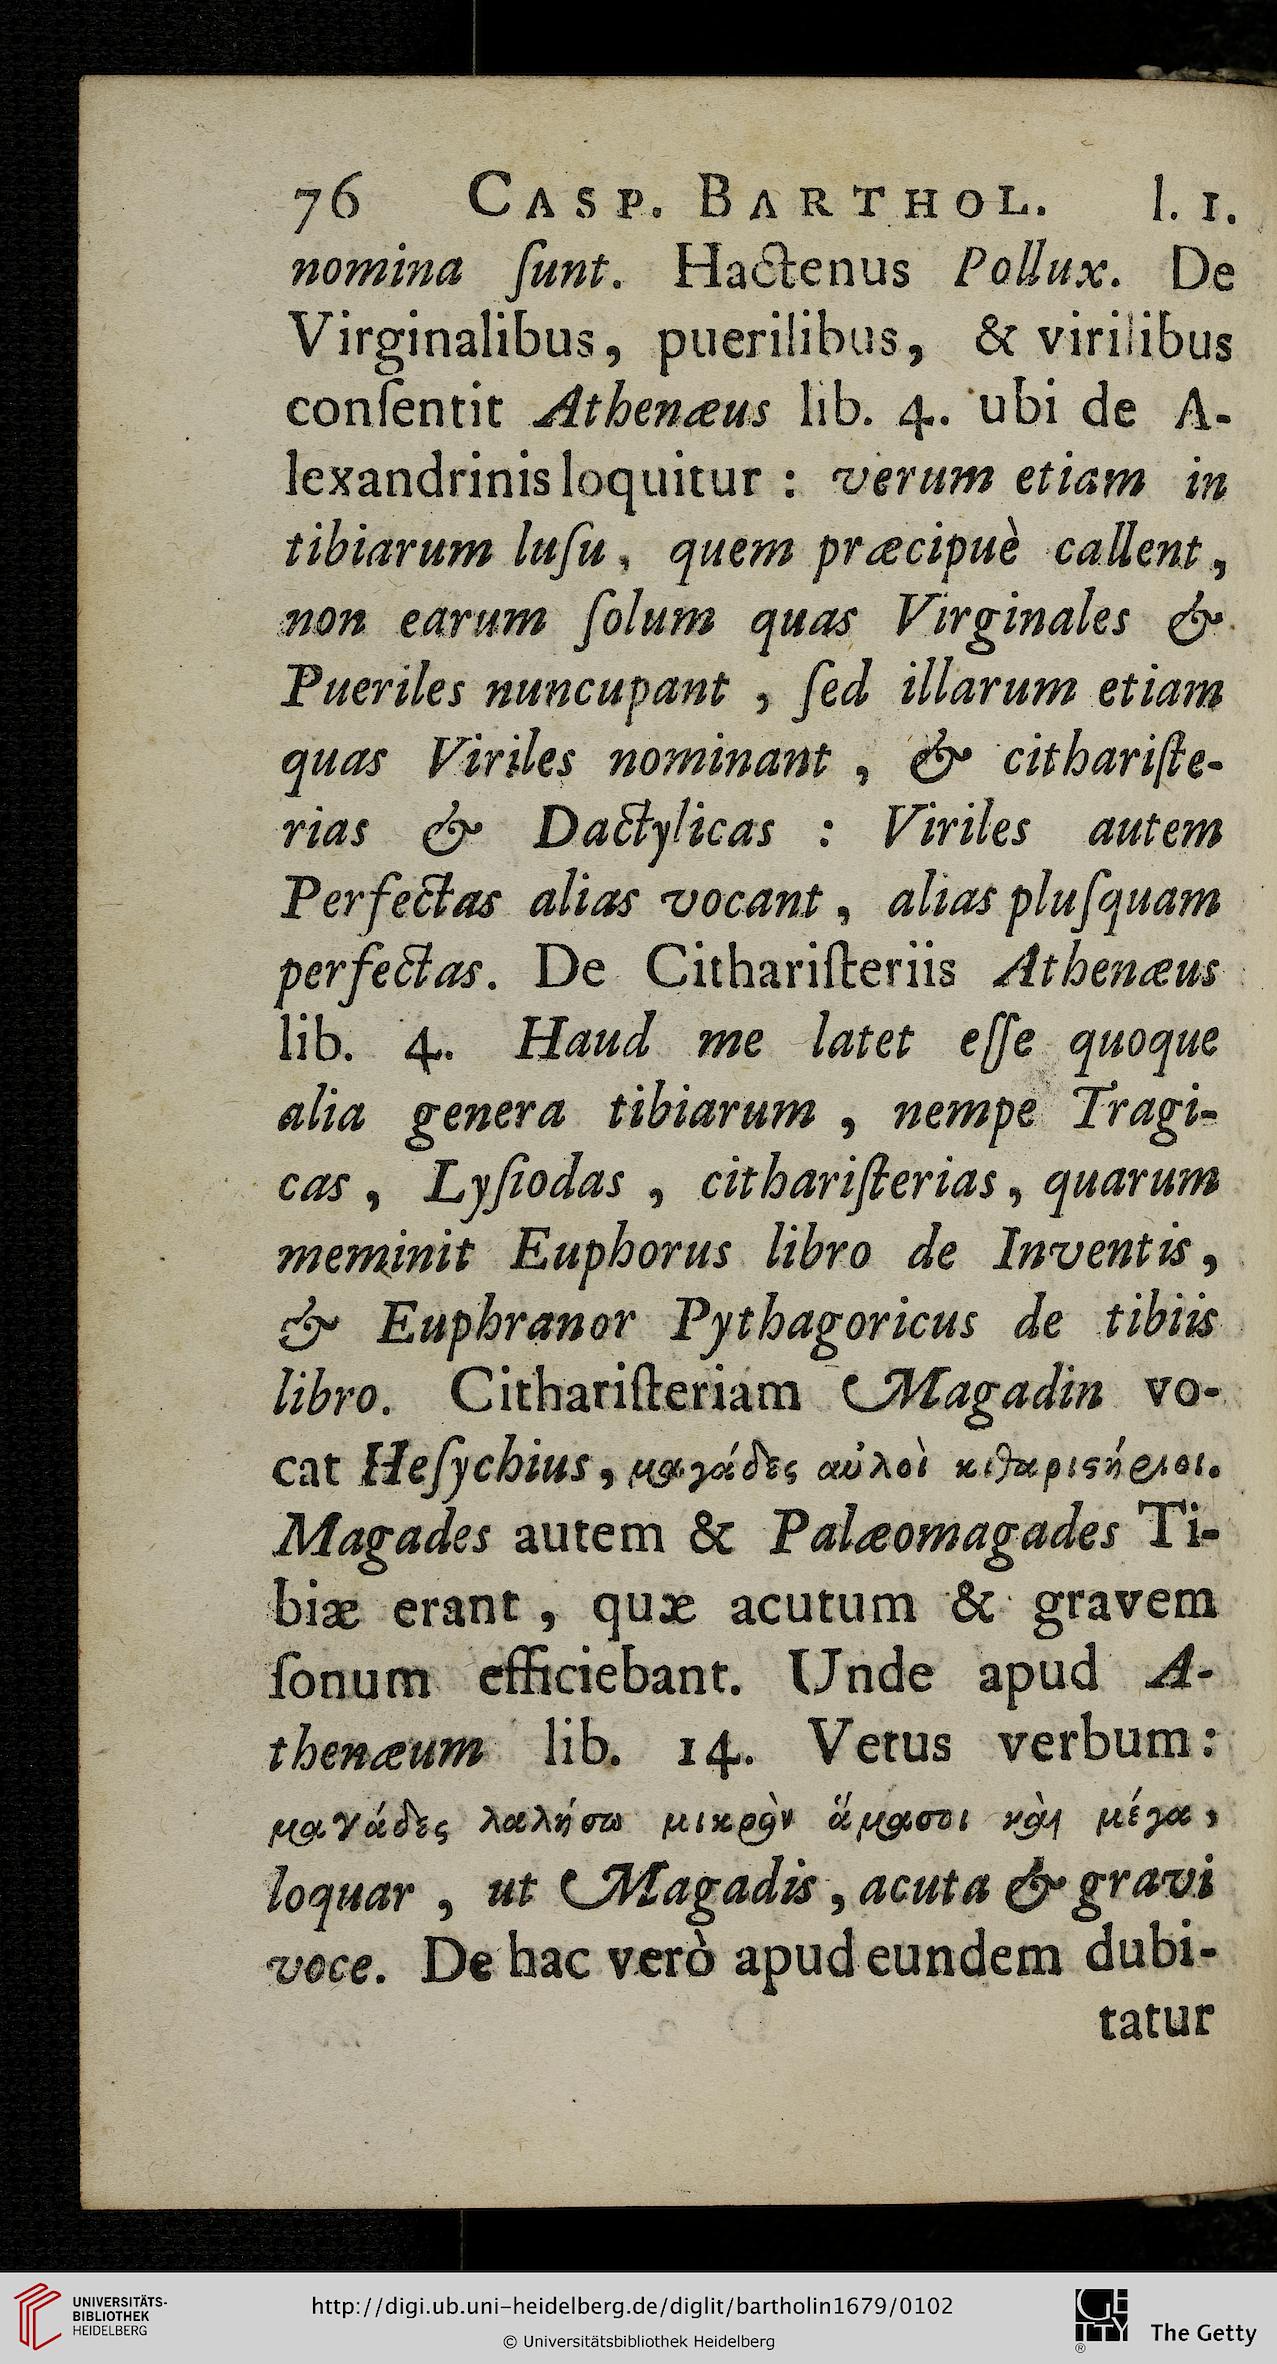 76 CASP. BARTHOL. l. 1.
nomina ſunt. Hactenus Pollux. De
Virginalibus, puerilibus, & virilibus
conſentit Athenæus lib. 4. ubi de A-
lexandrinis loquitur : verum etiam in
tibiarum luſu, quem præcipuè callent,
non earum ſolum quas Virginales &
Pueriles nuncupant , ſed illarum etiam
quas Viriles nominant , & cithariſte-
rias & Dactylicas : Viriles autem
Perfectas alias vocant , alias pluſquam
perfectas. De Cithariſteriis Athenæus
lib. 4. Haud me latet eſſe quoque
alia genera tibiarum , nempe Tragi-
cas , Lyſiodas , cithariſterias, quarum
meminit Euphorus libro de Inventis,
& Euphranor Pythagoricus de tibiis
libro. Cithariſteriam Magadin vo-
cat Heſychius, μαγάδες αὐλοὶ κιθαριϛήριοι.
Magades autem & Palæomagades Ti-
biæ erant , quæ acutum & gravem
ſonum efficiebant. Unde apud A-
thenæum lib. 14. Vetus verbum:
μαγάδες λαλήσω μικρὸν ἅμασοι καὶ μέγα,
loquar , ut Magadis, acuta & gravi
voce. De hac verò apud eundem dubi-
tatur
UNIVERSITÄTS-
BIBLIOTHEK
HEIDELBERG
http://digi.ub.uni-heidelberg.de/diglit/bartholin1679/0102
© Universitätsbibliothek Heidelberg
GETTY
The Getty